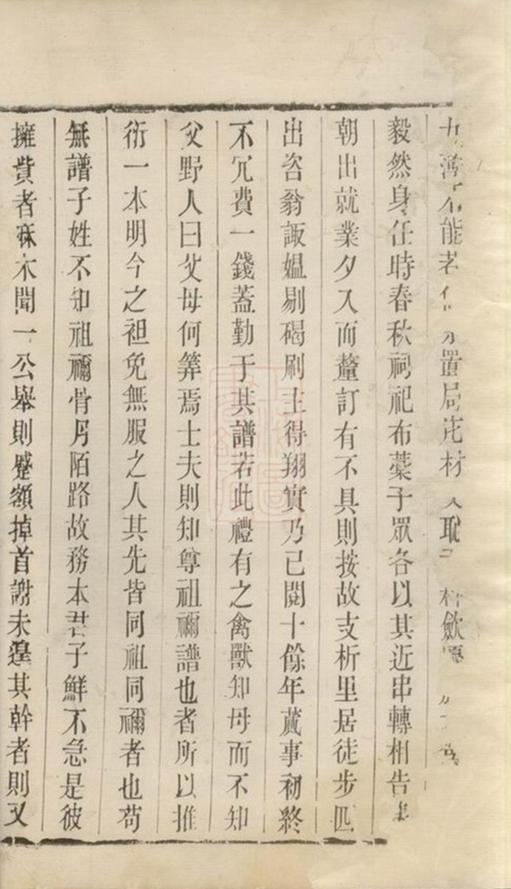 能者置局庀材
毅然身任時春秋祠祀布藁于眾各以其近串轉相告
朝出就業夕入而釐訂有不具則按故支析里居徒步匹
出咨翁諏媼剔碣刷主得翔實乃已閱十餘年蕆事初終
不冗費一錢蓋勤于共譜若此禮有之禽獸知母而不知
父野人曰父母何筭焉士夫則知尊祖禰譜也者所以推
衍一本明今之袒免無服之人其先皆同祖同禰者也苟
無譜子姓不知祖禰骨月陌路故務本君子鮮不急是彼
擁貲者寐木聞一公舉則蹙額掉首謝未遑其幹者則又